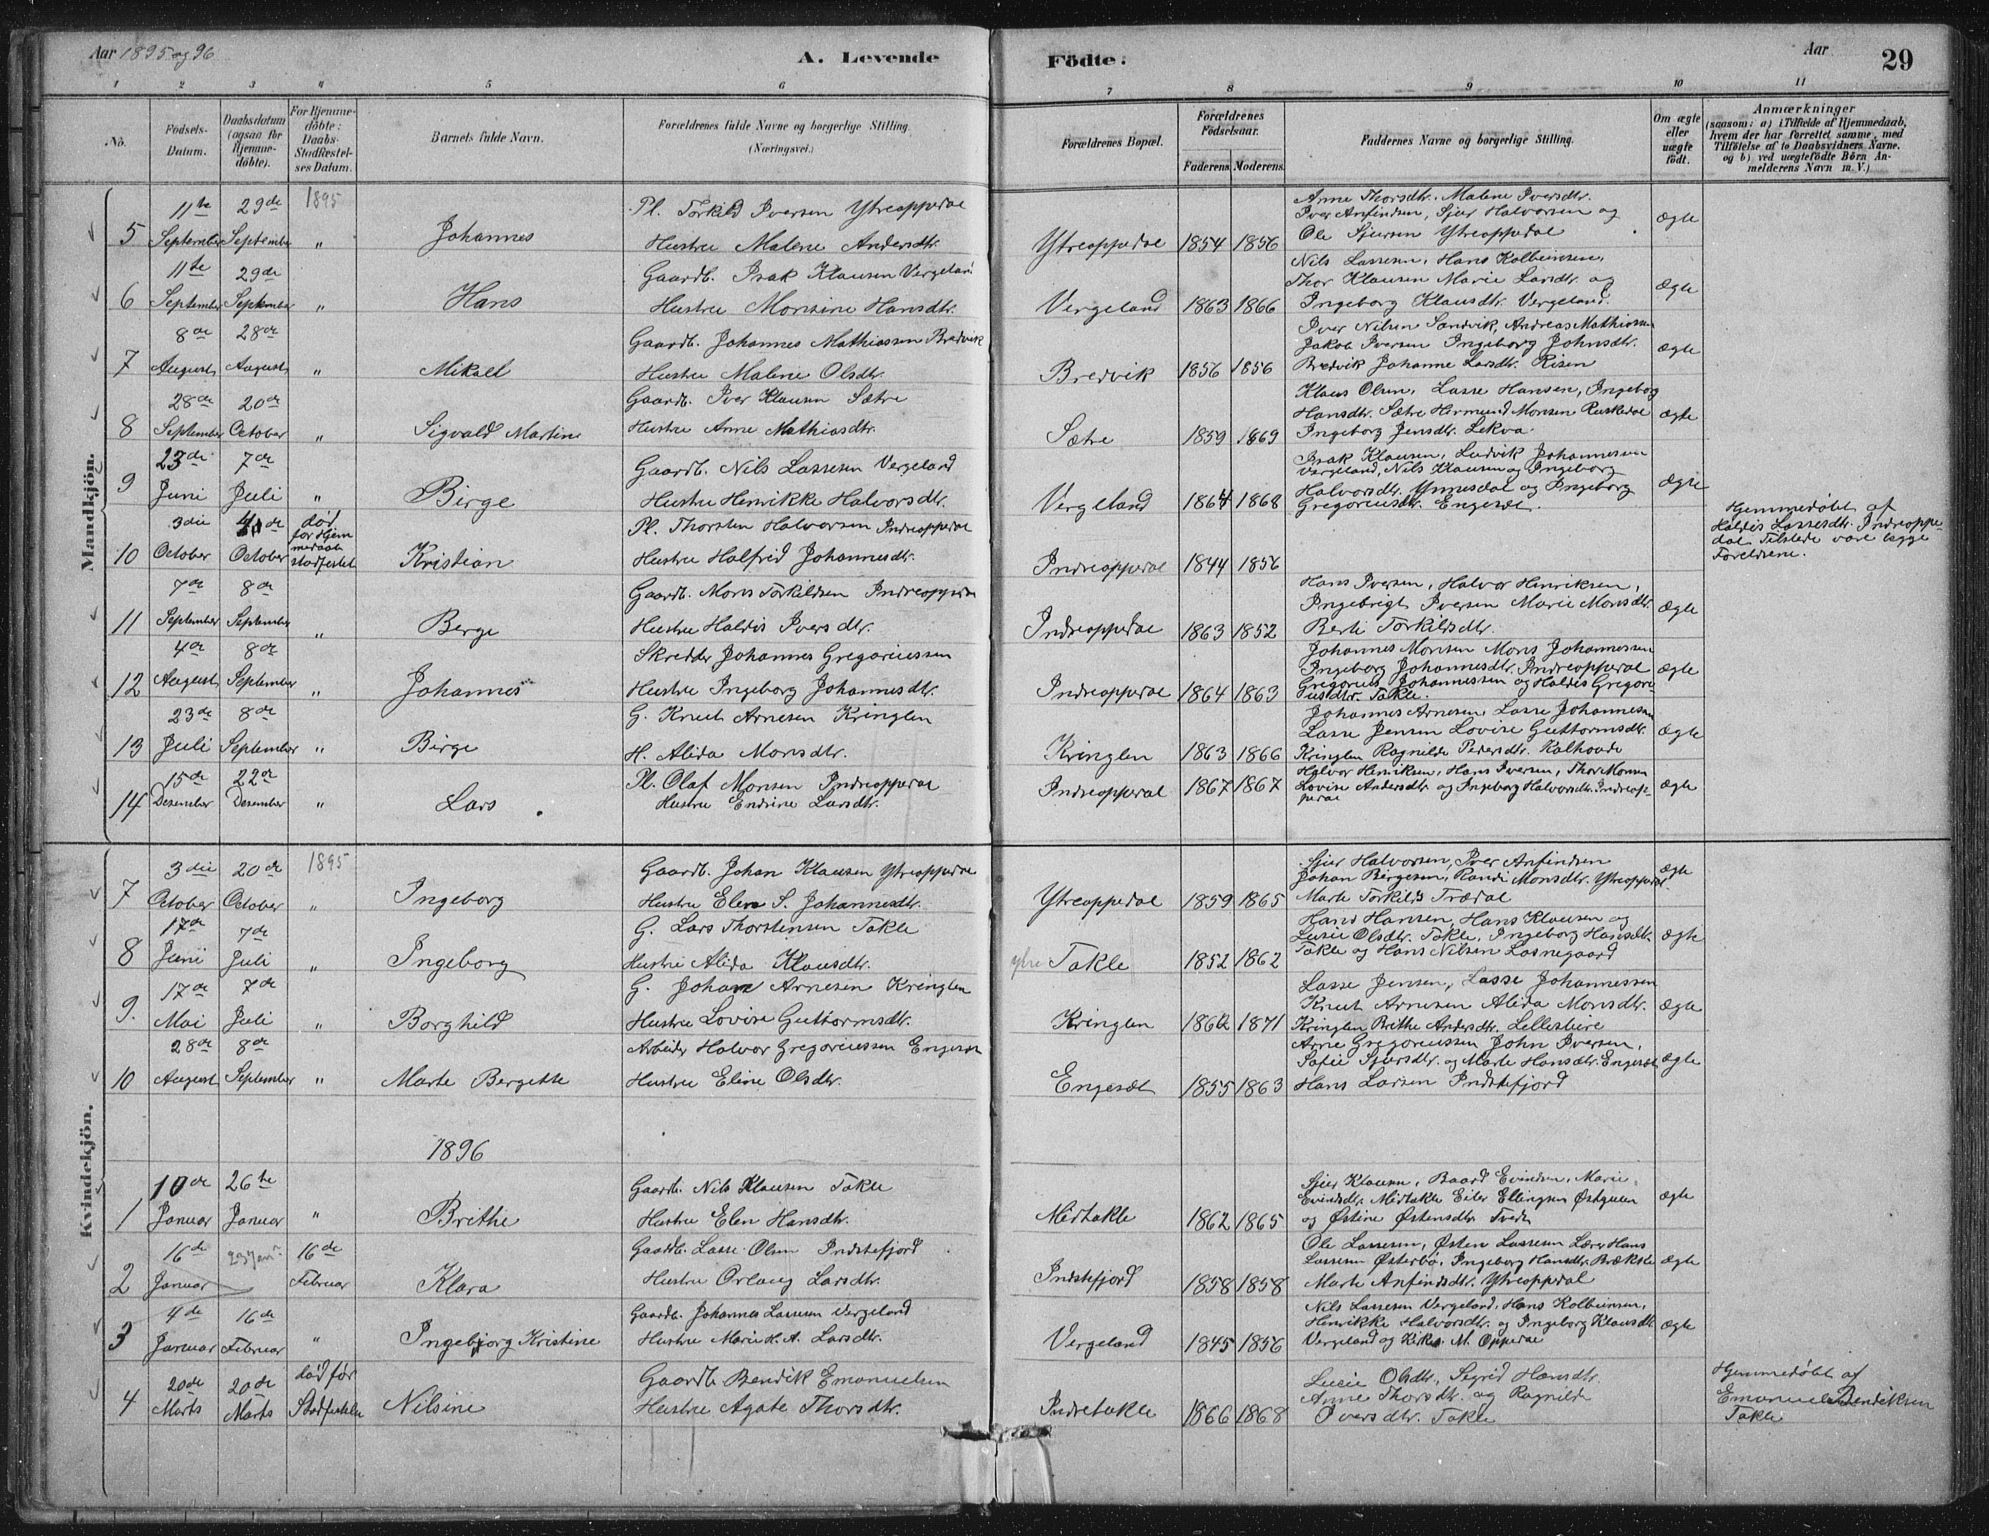 Aar 1895 og 96
A. Levende Födte:
Aar
29
1 2 3 4 5 6 7 8 9 10 11
No. Födsels-Datum. Daabsdatum (ogsaa for Hjemmedöbte). For Hjemmedöbte: Daabs-Stadfæstelses Datum. Barnets fulde Navn. Forældrenes fulde Navne og borgerlige Stilling. (Næringsvei.) Forældrenes Bopæl. Forældrenes Födselsaar. Faderens. Moderens. Faddernes Navne og borgerlige Stilling. Om ægte eller uægte födt. Anmærkninger (saasom: a) i Tilfælde af Hjemmedaab, hvem der har forrettet samme, med Tilföielse af to Daabsvidners Navne. og b) ved uægtefödte Börn Anmelderens Navn m. V.)
Mandkjön.
11te 29de 1895 Pl. Torkild Iversen Ytreoppedal Anne Thorsdtr. Malene Iversdtr.
Iver Anfindsen, Sjur Halvorsen og
5 September September " Johannes Hustru Malene Andersdtr. Ytreoppedal 1854 1856 Ole Sjursen Ytreoppedal ægte
11te 29de Gaardb. Isak Klausen Vergeland Nils Lassesen, Hans Kolbeinsen,
Thor Klausen Marie Larsdtr og
6 September September " Hans Hustru Monsine Hansdtr. Vergeland 1863 1866 Ingeborg Klausdtr. Vergeland. ægte
8de 28de Gaardb. Johannes Mathiassen Bredvik Iver Nilsen Sandvik, Andreas Mathiassen
Jakob Iversen Ingeborg Johnsdtr.
7 August August " Mikael Hustru Malene Olsdtr. Bredvik 1856 1856 Bredvik Johanne Larsdtr. Risen ægte
28de 20de Gaardb. Iver Klausen Sætre Klaus Olsen, Lasse Hansen, Ingeborg
Hansdtr. Sætre Hermund Monsen Ruskedal
8 September October " Sigvald Martin Hustru Anne Mathiasdtr. Sætre 1859 1869 Ingeborg Jensdtr. Lekva ægte
23de 7de Gaardb. Nils Lassesen Vergeland Isak Klausen, Ludvik Johannesen
Vergeland, Nils Klausen og Ingeborg
Halvorsdtr. Ynnesdal og Ingeborg
9 Juni Juli " Birge Hustru Henrikke Halvorsdtr. Vergeland 1864 1868 Gregoriusdtr. Engesæt. ægte
3die 4de død for Hjemmedaab stadfestet Pl. Thorsten Halvorsen Indreoppedal
10 October October Kristian Hustru Halfrid Johannesdtr. Indreoppedal 1844 1856 Hjemmedøbt af Haldis Lassesdtr. Indreoppedal Tilstede vare begge Foreldrene.
7de 8de Gaardb. Mons Torkildsen Indreoppedal Hans Iversen, Halvor Henriksen,
Ingebrigt Iversen Marie Monsdtr.
11 September September " Berge Hustru Haldis Iversdtr. Indreoppedal 1863 1852 Berti Torkildsdtr. ægte
4de 8de Skredder Johannes Gregoriussen Johannes Monsen Mons Johannessen
Ingeborg Johannesdtr. Indreoppedal
12 August September " Johannes Hustru Ingeborg Johannesdtr. Indreoppedal 1864 1863 Gregorius Johannessen og Haldis Gregoriusdtr. Takle. ægte
23de 8de G. Knut Arnesen Kringlen Johannes Arnesen Lasse Johannesen
Lasse Jensen Lovise Guttormsdtr.
13 Juli September " Birge H. Alida Monsdtr. Kringlen 1863 1866 Kringlen Ragnilde Pedersdtr. Kalhovde ægte
15de 22de Pl. Olaf Monsen Indreoppedal Halvor Henriksen, Hans Iversen, Thor Monsen
14 Desember Desember " Lars Hustru Endrine Larsdtr. Indreoppedal 1867 1867 Lovise Andersdtr og Ingeborg Halvorsdtr. Indreoppedal ægte
Kvindekjön.
3die 20de 1895 Gaardb. Johan Klausen Ytreoppedal Sjur Halvorsen, Iver Anfindsen
Johan Birgesen, Randi Monsdtr. Ytreoppedal.
7 October October " Ingeborg Hustru Elen S. Johannesdtr. Ytreoppedal 1859 1865 Marte Torkilds Trædal ægte
17de 7de G. Lars Thorstensen Takle Hans Hansen, Hans Klausen og
Lusie Olsdtr. Takle, Ingeborg Hansdtr.
8 Juni Juli " Ingeborg Hustru Alida Klausdtr. ytre Takle 1852 1862 Takle og Hans Nilsen Losnegaard ægte
17de 7de G. Johan Arnesen Kringlen Lasse Jensen, Lasse Johannessen
Knut Arnesen Alida Monsdtr.
9. Mai Juli " Borghild Hustru Lovise Guttormsdtr. Kringlen 1871 Kringlen Brithe Andersdtr. ægte
28de 8de Arbeider Halvor Gregoriussen Engesæt Arne Gregoriussen John Iversen,
Sofie Sjursdtr. og Marte Hansdtr. Engesæt
10 August September " Marte Bergitte Hustru Eline Olsdtr. Engesæt 1855 1863 Hans Larsen Indstefjord ægte
1896
10de 26te Gaardb. Nils Klausen Takle Sjur Klausen, Baard Evindsen, Marie
Evindsdtr. Midtakle Eiler Ellingsen Østgulen
1 Januar Januar " Brithe Hustru Elen Hansdtr. Midtakle 1862 1865 og Østine Østensdtr. Tvedt ægte
16de 23 Jan 16de Gaardb. Lasse Olsen Indstefjord Ole Lassesen, Østen Lassesen Lærer Hans
Lassesen Østerbø, Ingeborg Hansdtr. Brække
2 Januar Februar Klara Hustru Orlaug Larsdtr. Indstefjord 1858 1858 Marte Anfindsdtr. Ytreoppedal ægte
4de 16de Gaardb. Johannes Lassesen Vergeland Nils Lassesen Vergeland. Hans Kolbeinsen,
Henrikke Halvorsdtr. og Ingeborg Klausdtr.
3 Januar Februar " Ingebjorg Kristine Hustru Marie H. A. Larsdtr. Vergeland 1845 1856 Vergeland og M. Oppedal ægte
20de 20de død før Gaardb. Bendik Emanuelsen Lucie Olsdtr, Sigrid Hansdtr.
Anne Thorsdtr. og Ragnilde
4 Marts Marts Stadfestelse Nilsine Hustru Agate Thorsdtr. Indretakle 1866 1868 Iversdtr. Takle Hjemmedøbt af Emanuel Bendiksen Takle